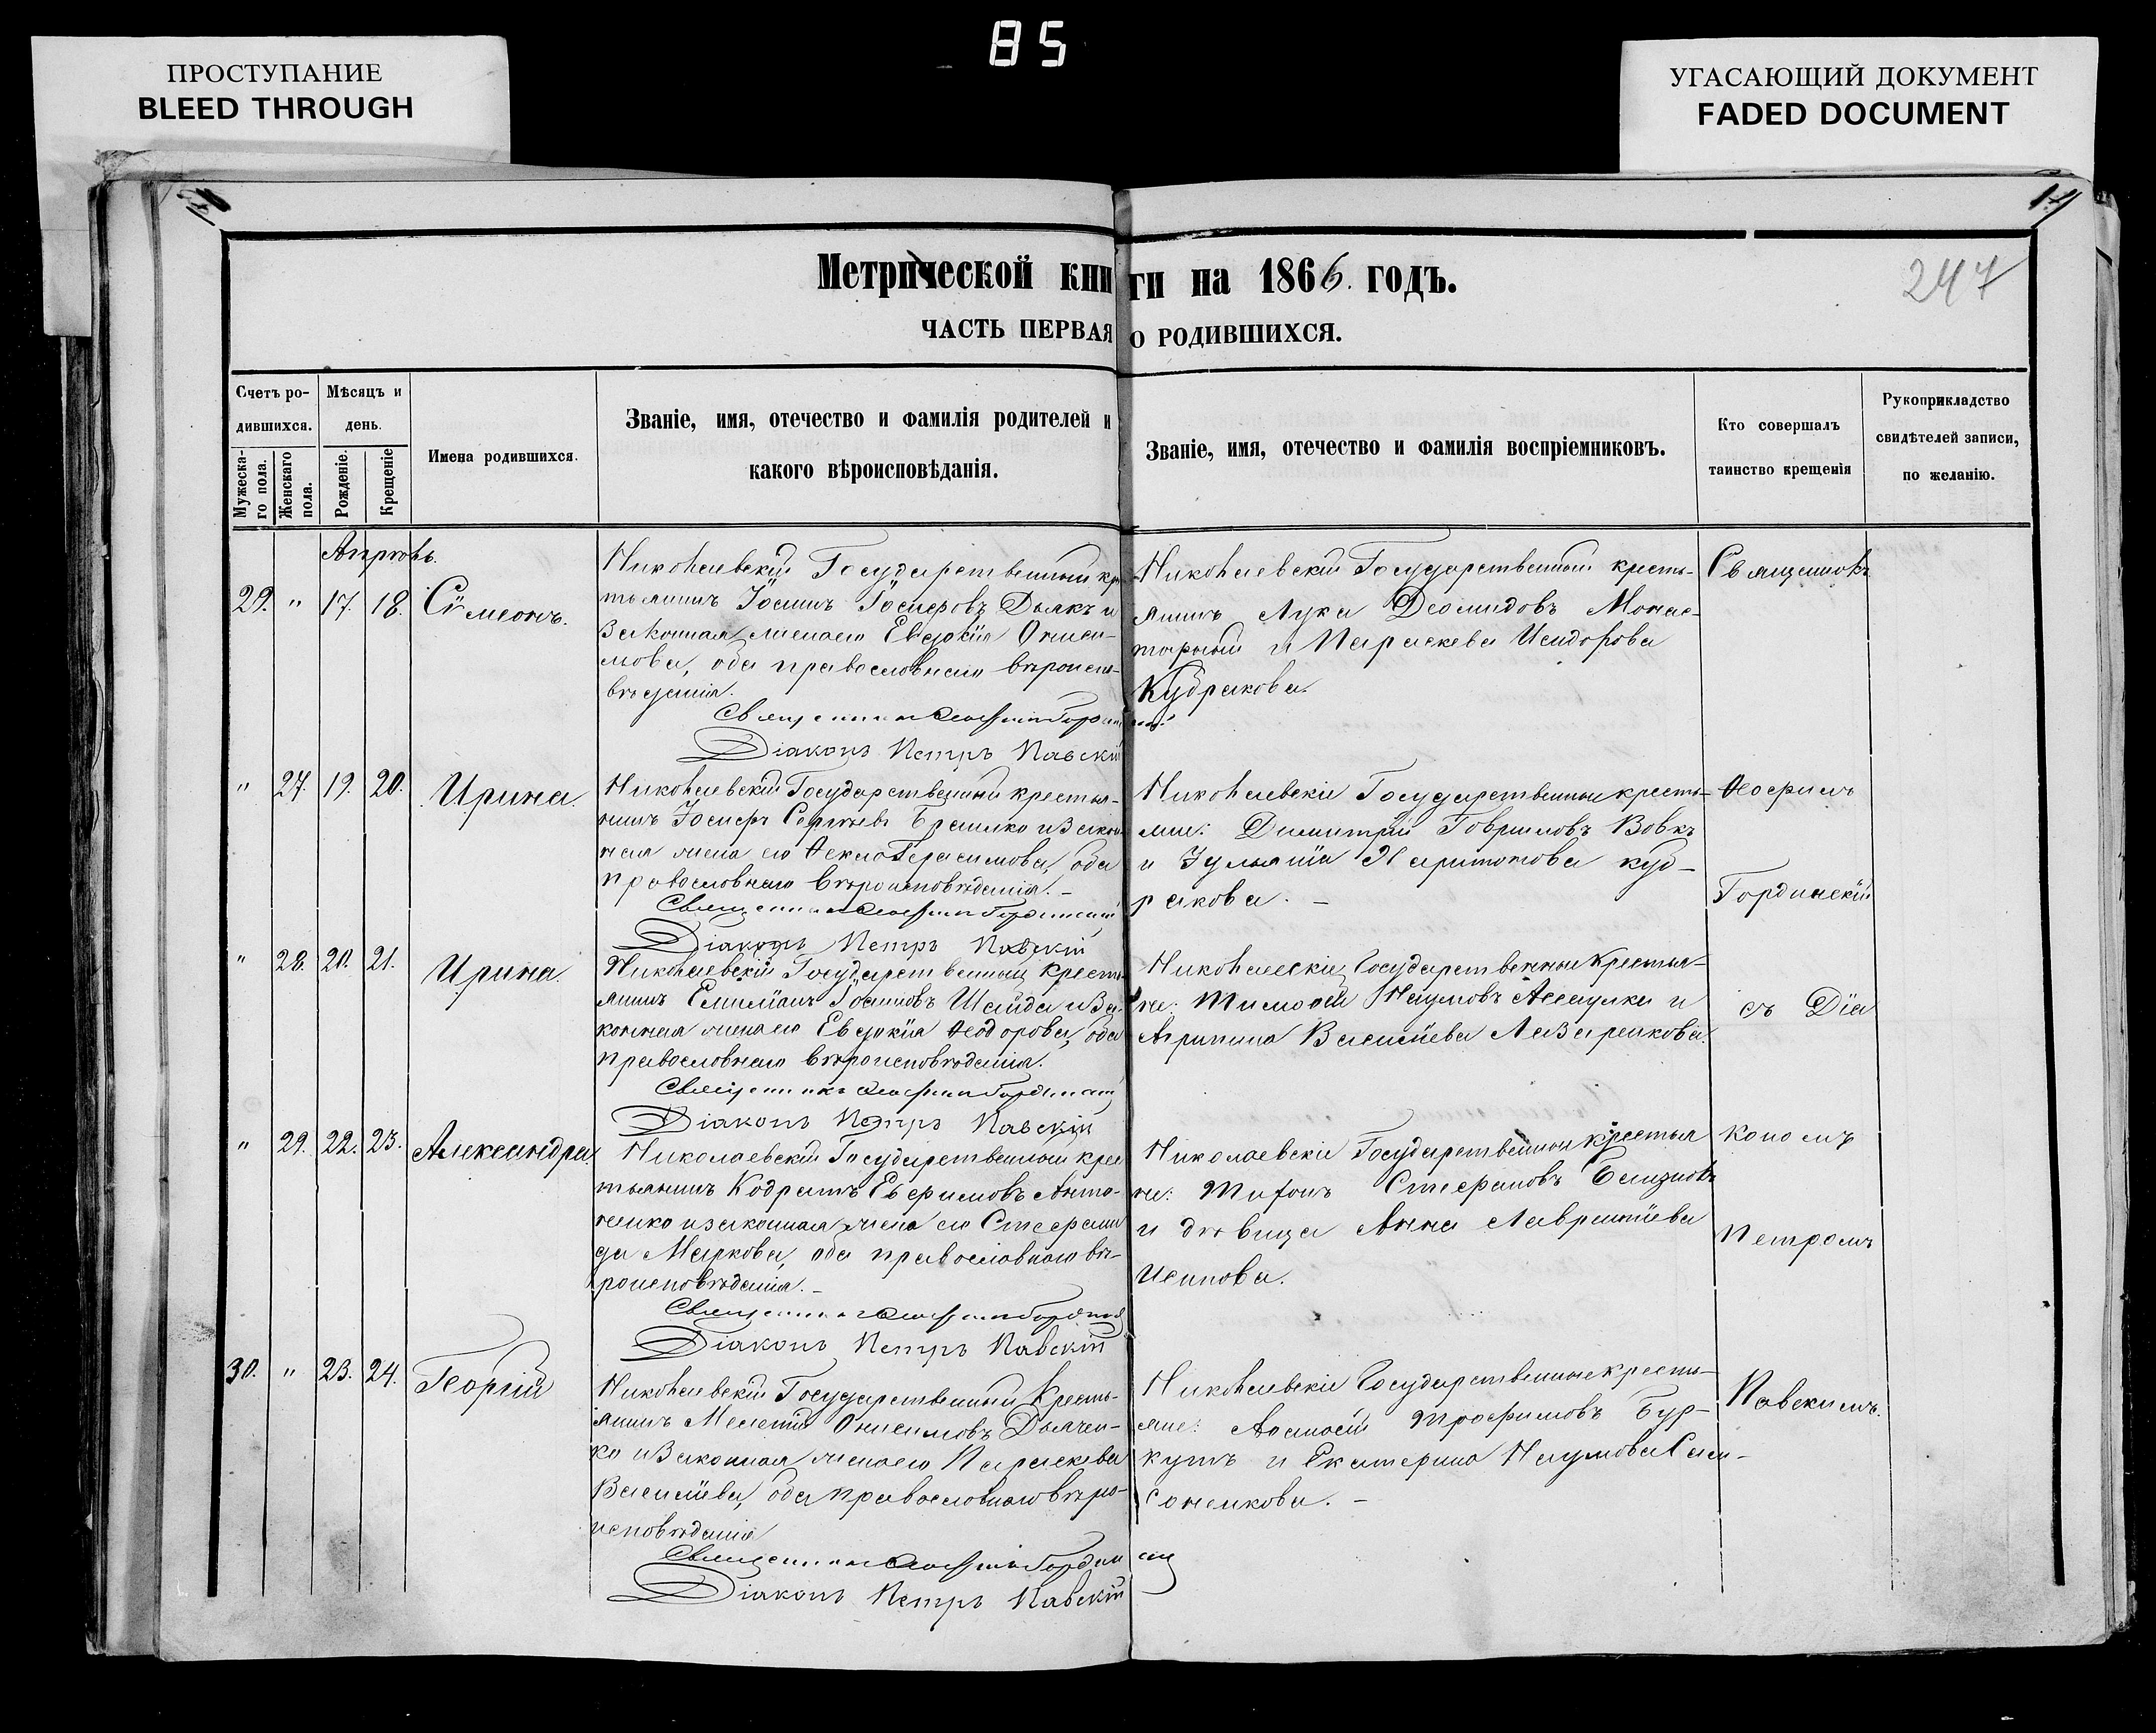 85
ПРОСТУПАНИЕ
BLEED THROUGH
УГАСАЮЩИЙ ДОКУМЕНТ
FADED DOCUMENT
247
Метрической книги на 1866. годъ.
ЧАСТЬ ПЕРВАЯ О РОДИВШИХСЯ.
Счетъ ро-
дившихся.
Мужеска-
го пола.
Женскаго
пола.
Мѣсяцъ и
день.
Рожденіе.
Крещеніе
Имена родившихся.
Званіе, имя, отечество и фамилія родителей и
какого вѣроисповѣданія.
Званіе, имя, отечество и фамилія воспріемниковъ.
Кто совершалъ
таинство крещенія
Рукоприкладство
свидѣтелей записи,
по желанію.
Апрѣль.
29. " 17. 18. Сѵмеонъ.
Николаевскій Государственный кре
тьянинъ Іосифовъ Дьякъ и
Законная жена его Евдокія Ониси-
мова, оба православнаго вѣроиспо-
вѣданія.
Священникъ Ѳеофилъ Гординскій
Діаконъ Петръ Павскій
Николаевскій Государственный кресть-
янинъ Лука Діомидовъ Монас-
тырный и Параскева Исидорова
Кудрякова.
Священникъ
" 27. 19. 20. Ирина.
Николаевскій Государственный крестья-
нинъ Іосифъ Сергѣевъ Брашко и закон
ная жена его Ѳекла Герасимова, оба
православнаго вѣроисповѣданія. –
Священникъ Ѳеофилъ Гординскій
Діаконъ Петръ Павскій
Николаевскіе Государственные кресть-
яне: Димитрій Гавриловъ Вовкъ
и Іуліанія Харитонова Куд-
рякова. –
Ѳеофилъ
Гординскій
" 28. 20. 21. Ирина.
Николаевскій Государственный кресть
янинъ Емиліанъ Шайда и За
конная жена его Евдокія Ѳеодорова, оба
православнаго вѣроисповѣданія.
Священникъ Ѳеофилъ Гординскій
Діаконъ Петръ Павскій
Николаевскіе Государственные Крестья-
не: Тимоѳей Наумовъ и
Агрипина Василіева Лазаренкова.
съ Діа
" 29. 22. 23. Александра.
Николаевскій Государственный крес
тьянинъ Кодратъ Евфимовъ Анто-
ненко и законная жена его Стефани
да Маркова, оба православнаго вѣ-
роисповѣданія. –
Священникъ Ѳеофилъ Гординскій
Діаконъ Петръ Павскій
Николаевскіе Государственные крестья
не: Стефановъ
и дѣвица Анна Лаврентіева
Исипова.
кономъ
Петромъ
30. " 23. 24. Георгій
Николаевскій Государственный Кресть-
янинъ Мелетій Онисимовъ Дьячен-
ко и Законная жена его Параскева
Василіева, оба православнаго вѣро-
исповѣданія
Священникъ Ѳеофилъ Гординскій
Діаконъ Петръ Павскій
Николаевскіе Государственные кресть-
яне: Аѳанасій Трофимовъ Бур-
кутъ и Екатерина Наумова Сам-
соненкова. –
Павскимъ.